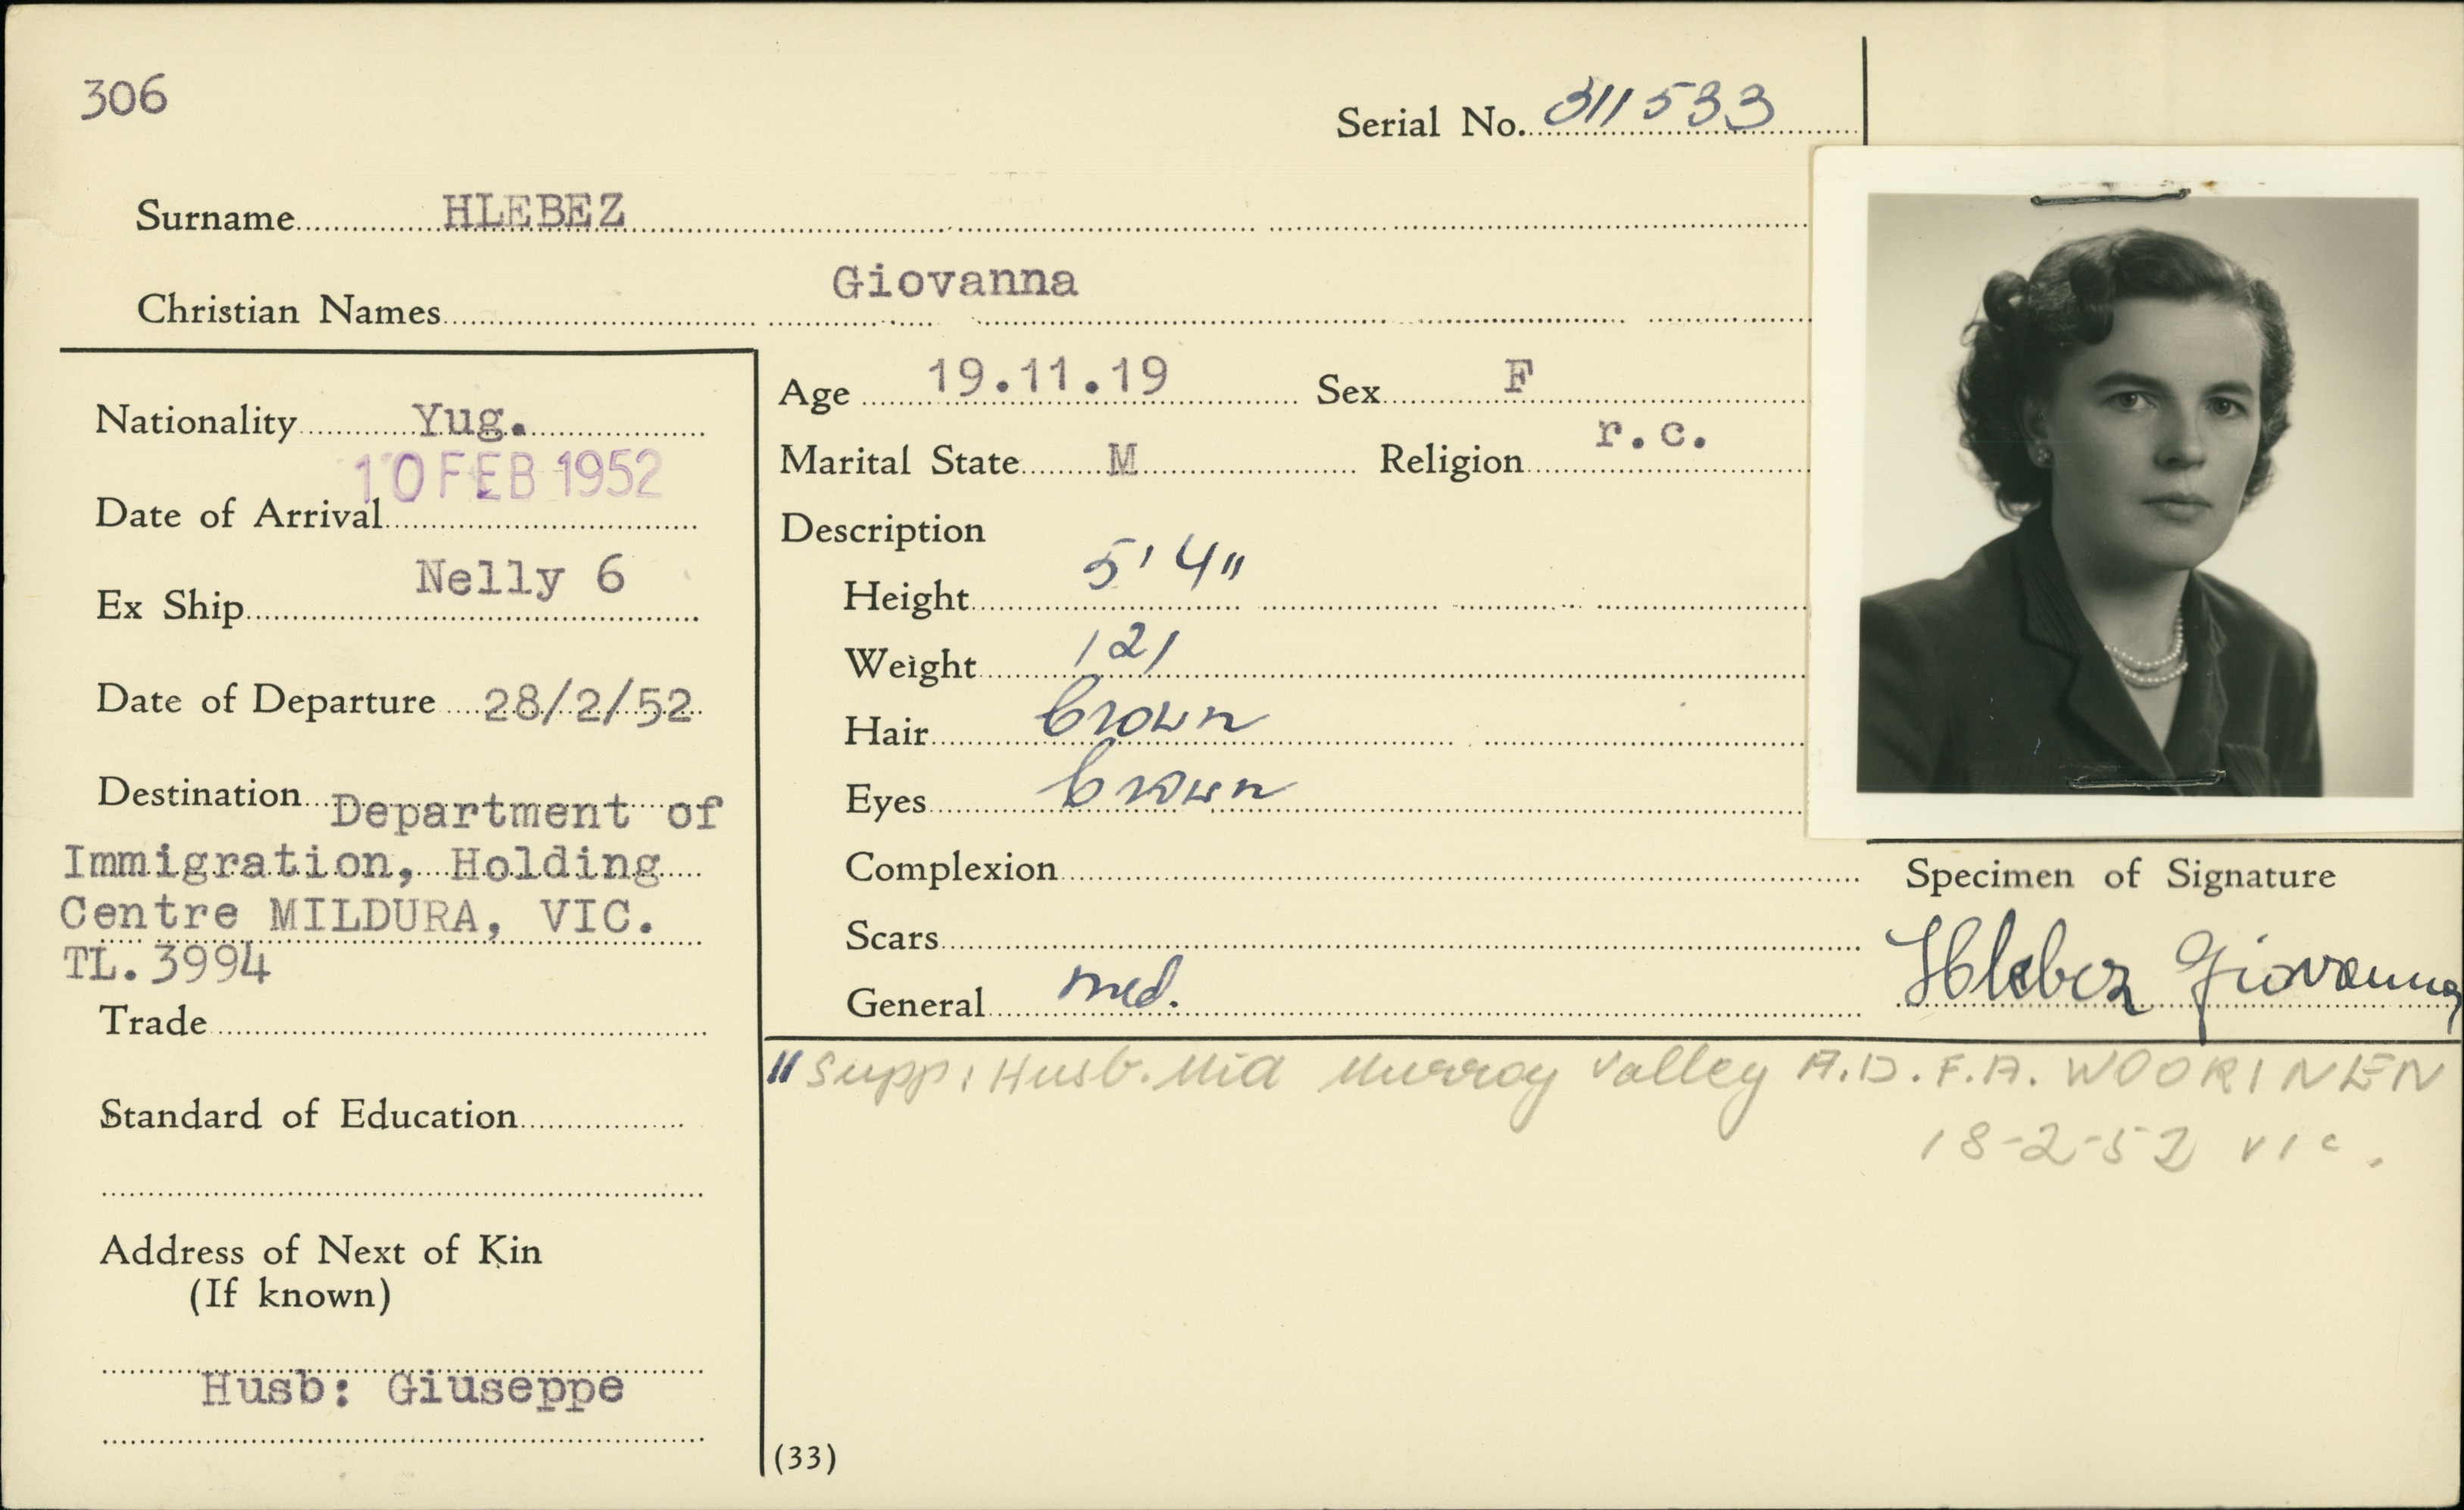 306
Serial No. 311533
Surname HLEBEZ
Christian Names Giovanna
Nationality Yug.
Date of Arrival 10 FEB 1952
Ex Ship Nelly 6
Date of Departure 28/2/52
Destination Department of
Immigration, Holding
Centre MILDURA, VIC.
TL.3994
Trade
Standard of Education
Address of Next of Kin
(If known)
Husb: Giuseppe
Age 19.11.19 Sex F
Marital State M Religion r.c.
Description
Height 5' 4"
Weight 121
Hair brown
Eyes brown
Complexion
Scars
General med.
Specimen of Signature
Hlebez Giovanna
" Supp: Husb. Mid Murray Valley A.D.F.A. WOORINEN
18-2-52 VIC.
(33)